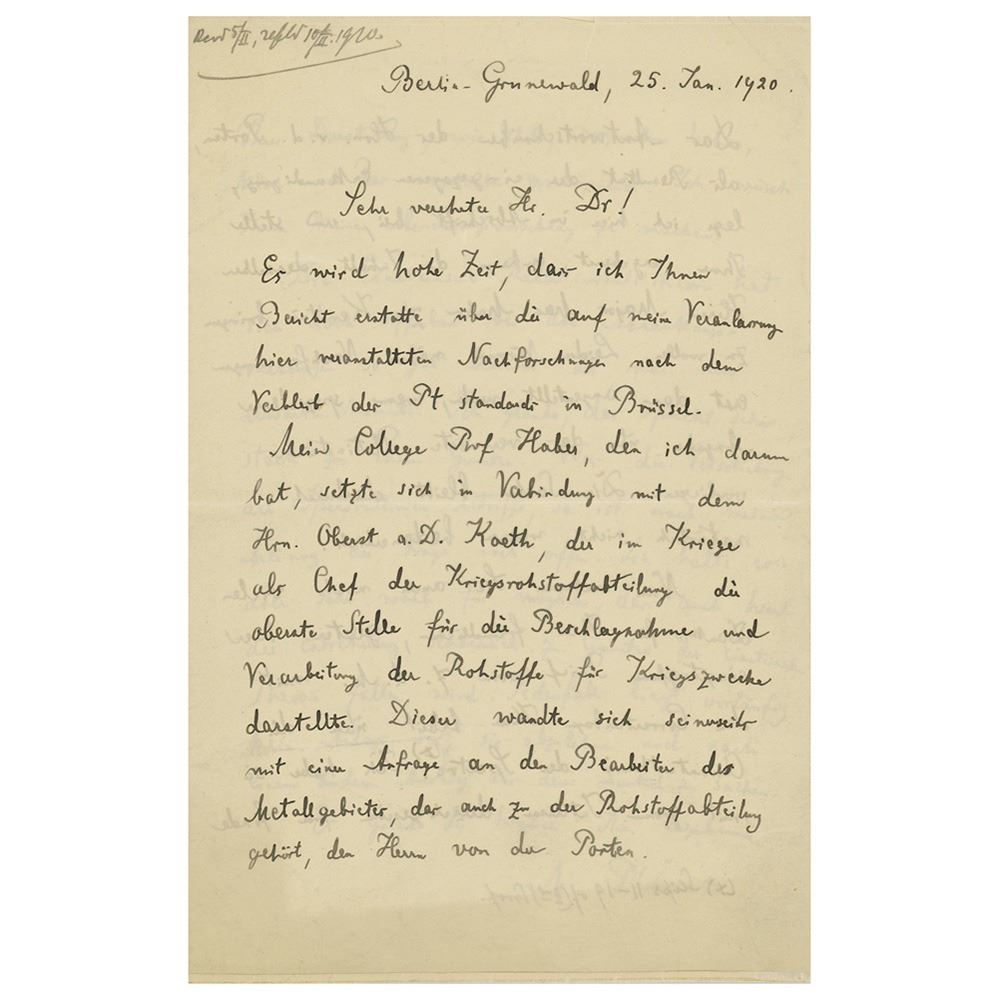 Recd 5/II, refld 10/II. 1920.
Berlin-Grunewald, 25. Jan. 1920.
Sehr verehrter Hr. Dr!
Es wird hohe Zeit, dass ich Ihnen
Bericht erstatte über die auf meine Veranlassung
hier veranstalteten Nachforschungen nach dem
Verbleib der Pt standards in Brüssel.
Mein College Prof Haber, den ich darum
bat, setzte sich in Verbindung mit dem
Hrn. Oberst a.D. Koeth, der im Kriege
als Chef der Kriegsrohstoffabteilung die
oberste Stelle für die Beschlagnahme und
Verarbeitung der Rohstoffe für Kriegszwecke
darstellte. Dieser wandte sich seinerseits
mit einer Anfrage an den Bearbeiter des
Metallgebietes, der auch zu der Rohstoffabteilung
gehört, den Herrn von der Porten.